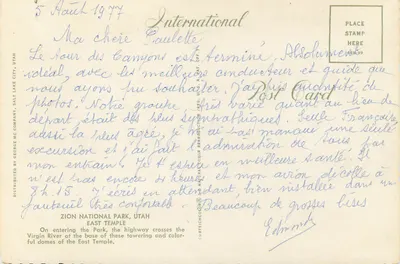 5 Août 1977
International
PLACE
STAMP
HERE
Post Card
Ma chère Paulette
Le tour des Canyons est terminé. Absolument
idéal, avec les meilleurs conducteur et guide que
nous ayons pu souhaiter. J'ai pris quantité de
photos. Notre groupe très varié quant au lieu de
départ était des plus sympathiques. Seule Française
aussi la plus âgée, je n'ai pas manqué une seule
excursion et j'ai fait l'admiration de tous par
mon entrain. Je t'espère en meilleure santé. Il
n'est pas encore 4 heures et mon avion décolle à
8 h 15. J'écris en attendant, bien installée dans un
fauteuil très confortable. Beaucoup de grosses bises
Edmonde
ZION NATIONAL PARK, UTAH
EAST TEMPLE
On entering the Park, the highway crosses the
Virgin River at the base of these towering and color-
ful domes of the East Temple.